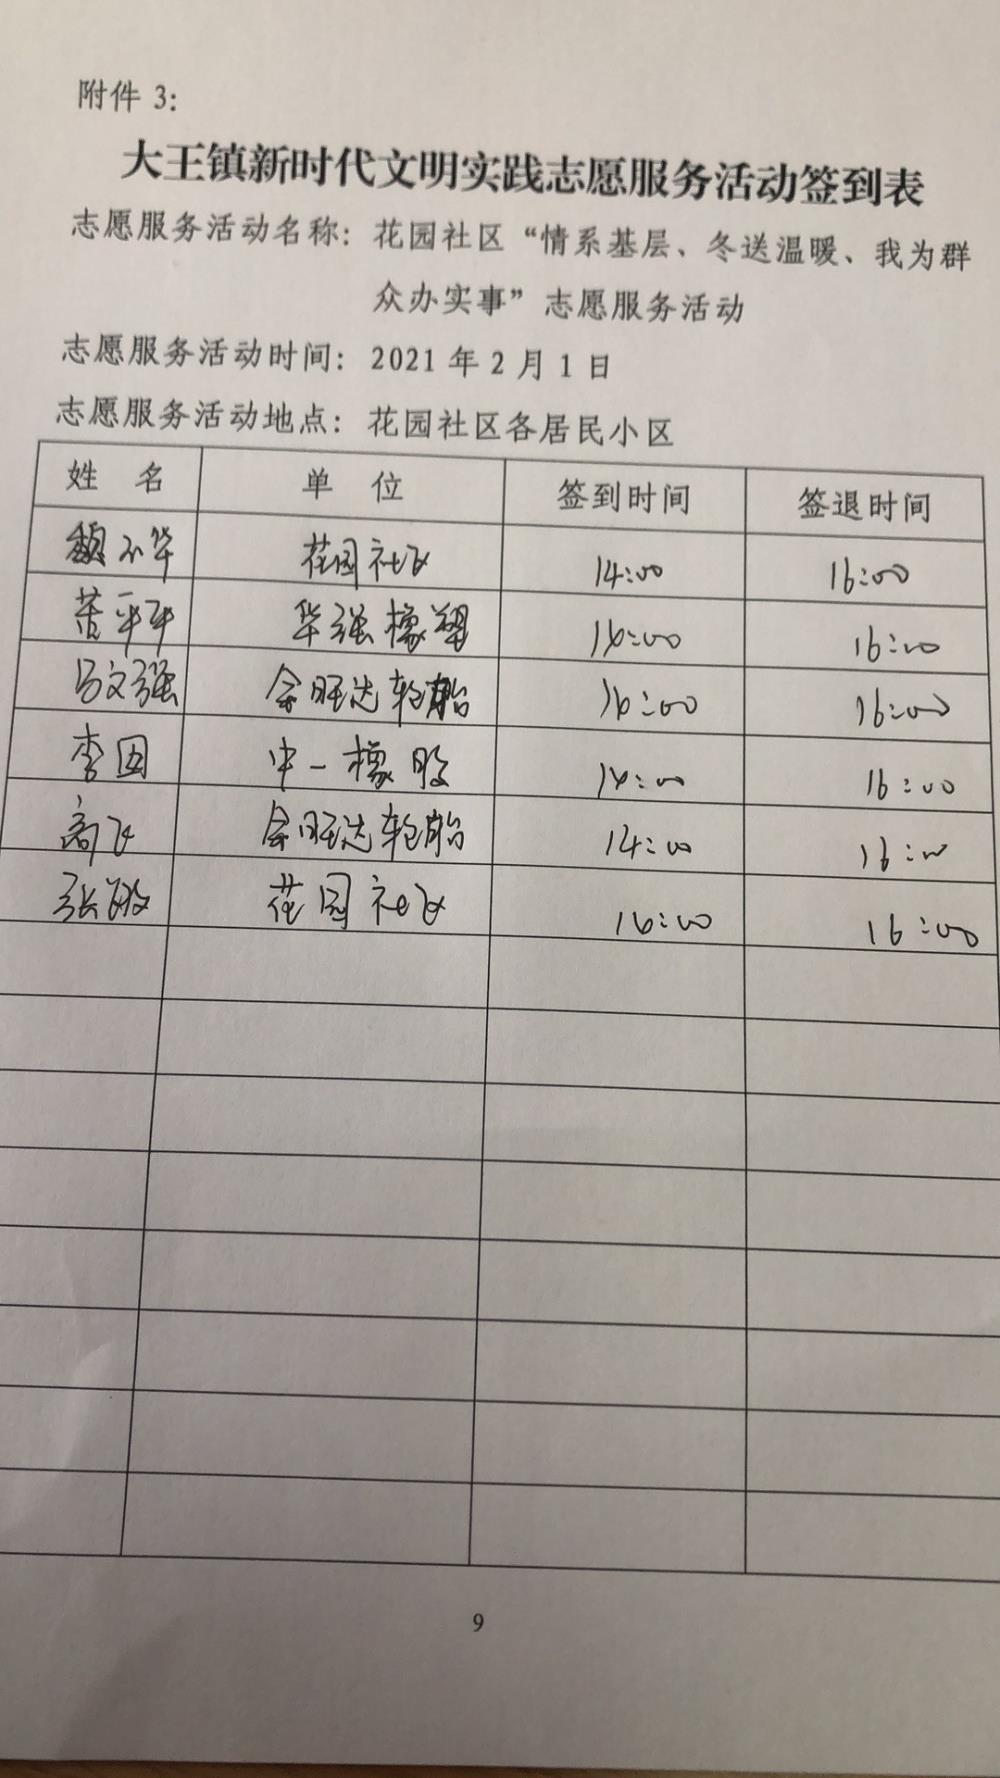 附件 3:
大王镇新时代文明实践志愿服务活动签到表
志愿服务活动名称: 花园社区“情系基层、冬送温暖、我为群
众办实事”志愿服务活动
志愿服务活动时间: 2021 年 2 月 1 日
志愿服务活动地点: 花园社区各居民小区
姓 名 单 位 签到时间 签退时间
花园社区 14:00 16:00
苦平平 华强橡塑 14:00 16:00
吕文强 金旺达轮胎 16:00
李国 中一橡胶 14:00 16:00
高飞 金旺达轮胎 14:00 16:00
张敏 花园社区 16:00 16:00
9